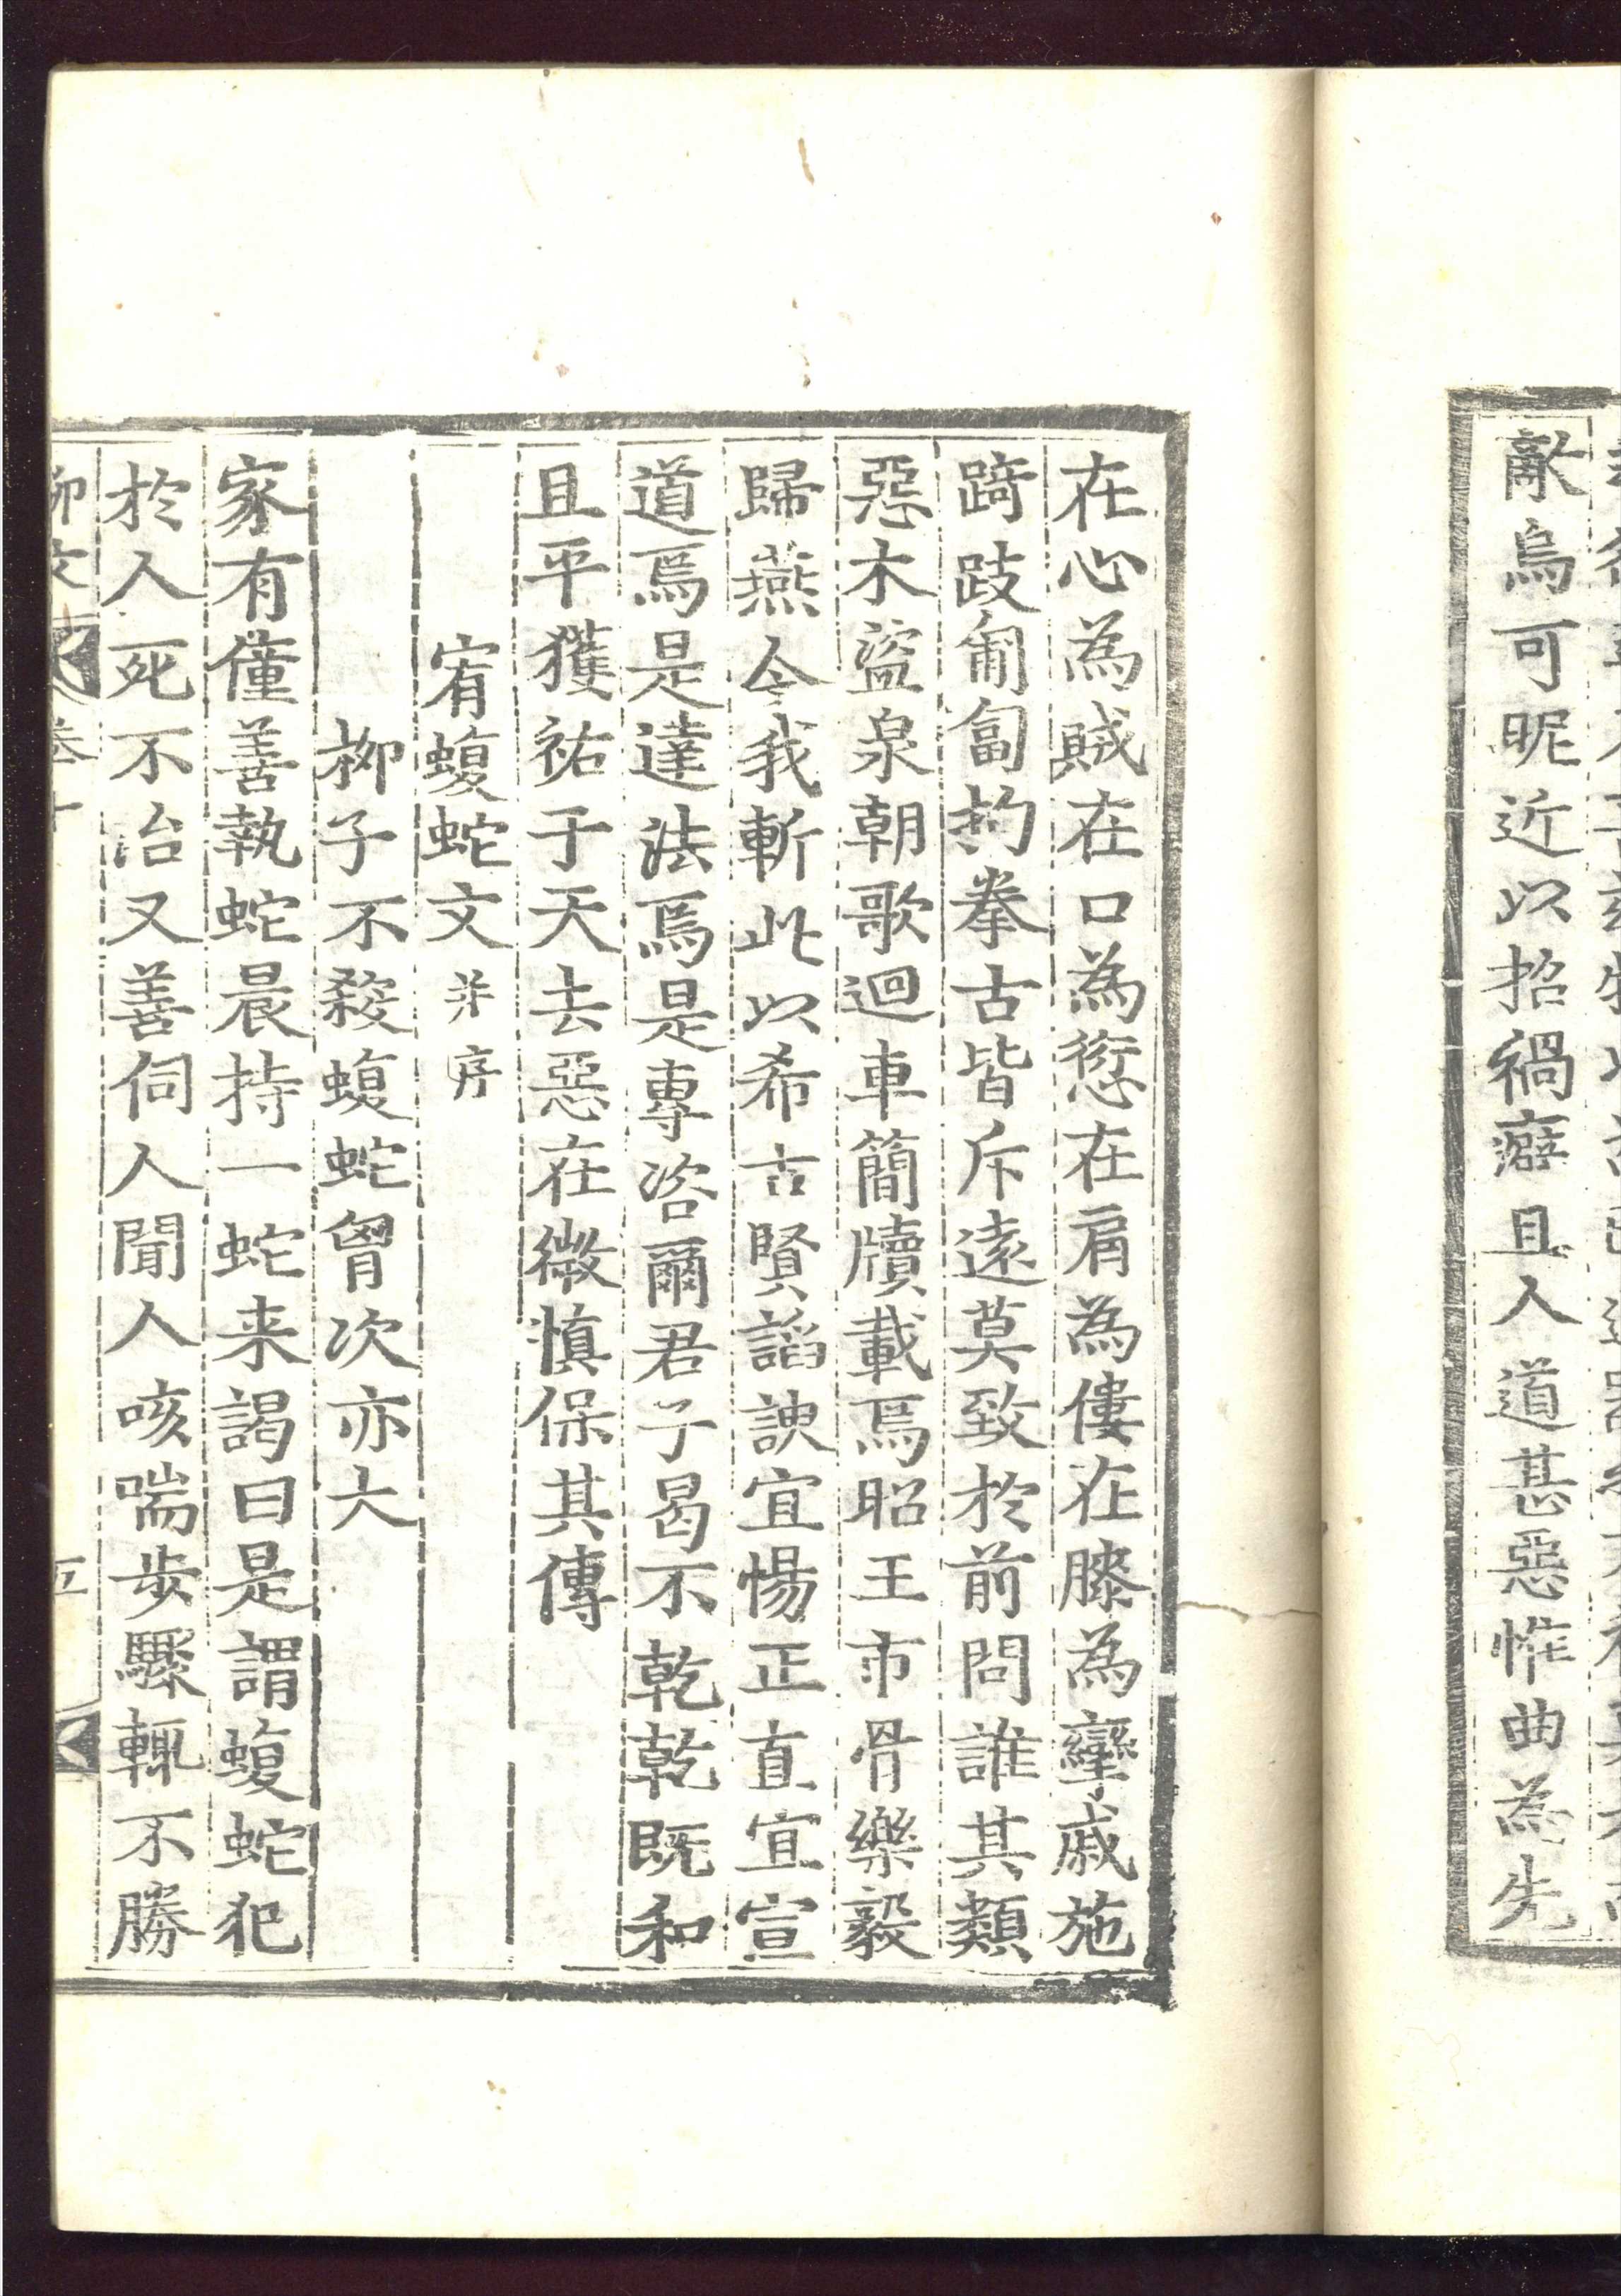 敵烏可昵近以招禍癖且人道甚惡惟曲為先
在心為賊在口為愆在肩為僂在膝為攣戚施
踦跂匍匐拘拳古皆斥遠莫致於前問誰其類
惡木盜泉朝歌迴車簡牘載焉昭王市骨樂毅
歸燕今我斬此以希古賢謟諛宜惕正直宜宣
道焉是達法焉是專咨爾君子曷不乾乾既和
且平獲祐于天去惡在微慎保其傳
宥蝮蛇文并序
柳子不殺蝮蛇胷次亦大
家有僮善執蛇晨持一蛇来謁曰是謂蝮蛇犯
於人死不治又善伺人聞人咳喘步驟輒不勝
柳文 卷十 五